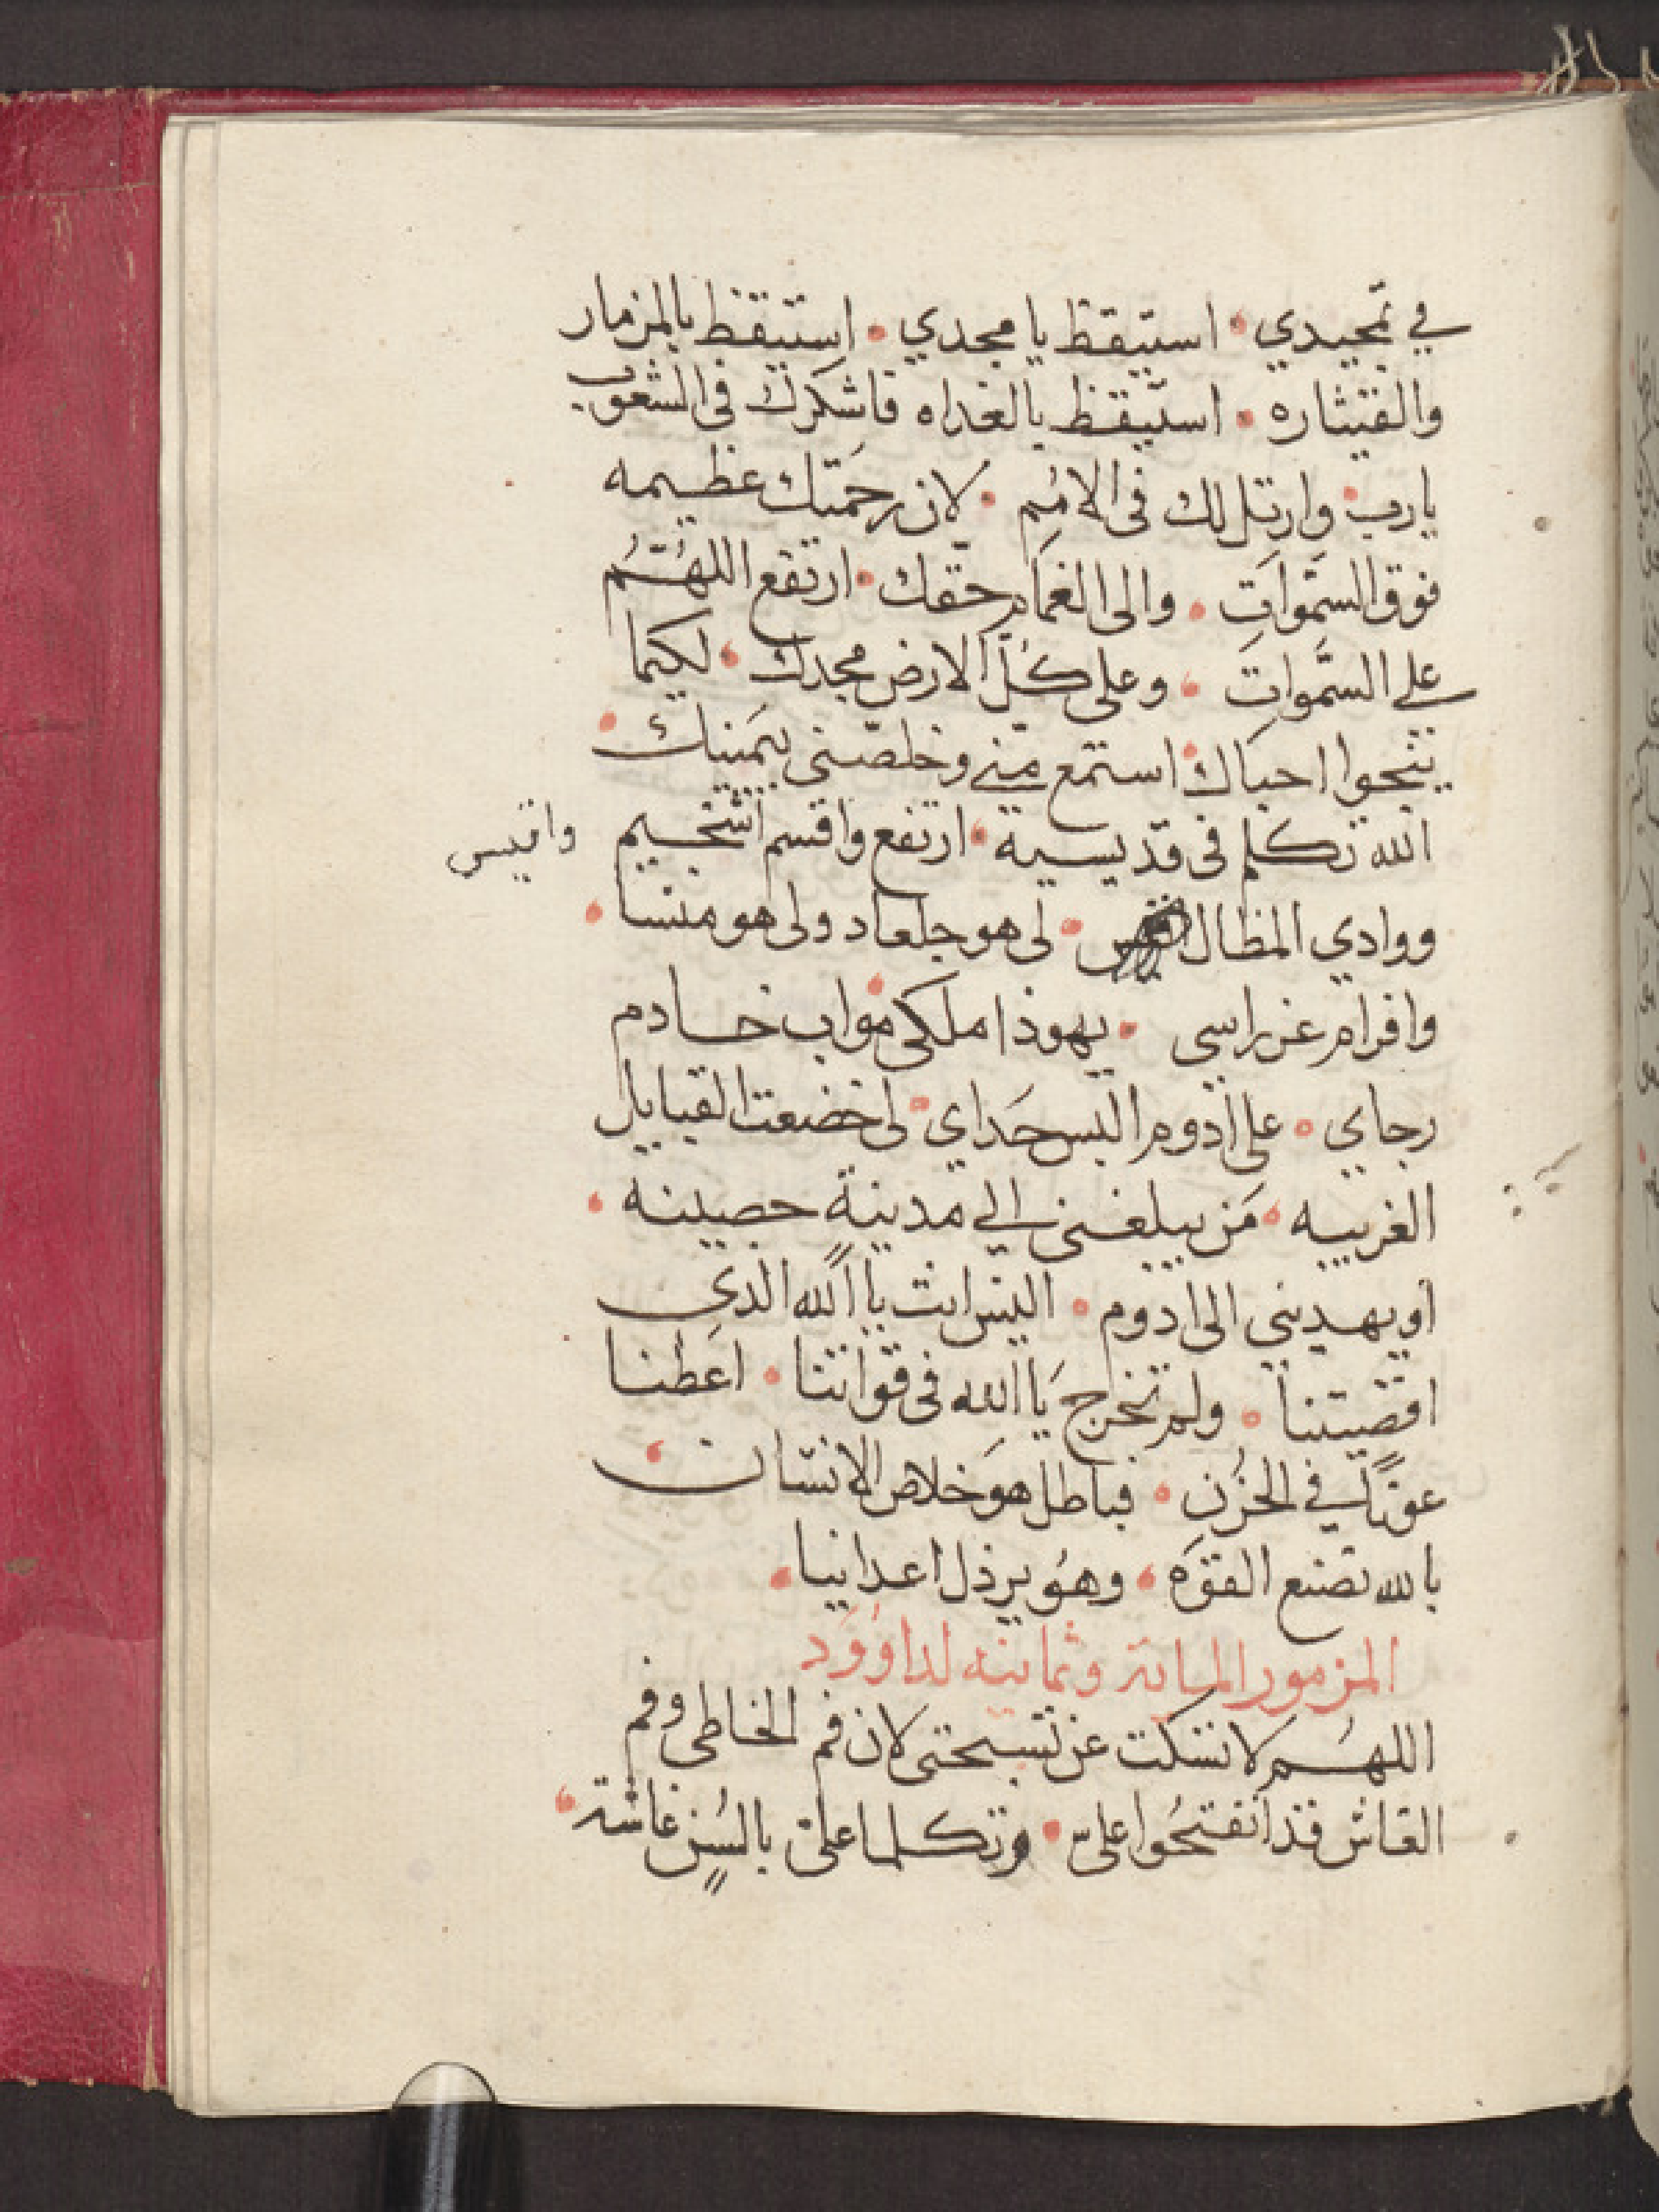 في تمجيدي • استيقظ يا مجدي • استيقظ بالمزمار
والقيثاره • استيقظ بالغداه فاشكرك فى الشعوب
يارب • وارتل لك فى الامُمِ • لان رحمَتك عظيمه
فوق السمَّواتِ • والى الغمَام حقّك • ارتفع اللهُمَّ
على السمَّواتِ • وعلى كُلّ الارض مجدك • لكيما
ينجوا احباك • استمع منّي وخلصّنى بيَمينك •
الله تكلم فى قدّيسيه • ارتفع واقسم اشخيم واقيس
ووادي المظال • لى هو جلعاد ولى هو منسا •
وافرام عز راسى • يهوذا ملكى • مواب خادم
رجاي • على ادوم البس حَداي • لى خضعت القبايل
الغريبه • مَن يبلغنى الي مدينةٍ حصينه •
او يهديني الى ادوم • اليس انت يا الله الذي
اقصيتنا • ولم تخرج يَا الله فى قواتنا • اعَطنا
عونًا في الحُزنِ • فباطل هوَ خلاص الانسان •
بالله نصنع القوَه • وهوُ يرذل اعداينا •
المزمور المائة وثمانيه لداوُوَد
اللهُم لا تسكت عن تسبحتى لان فم الخاطى وفم
الغاش قد انفتحُوا علىّ • وتكلما علىّ بالسُنٍ غاشة •